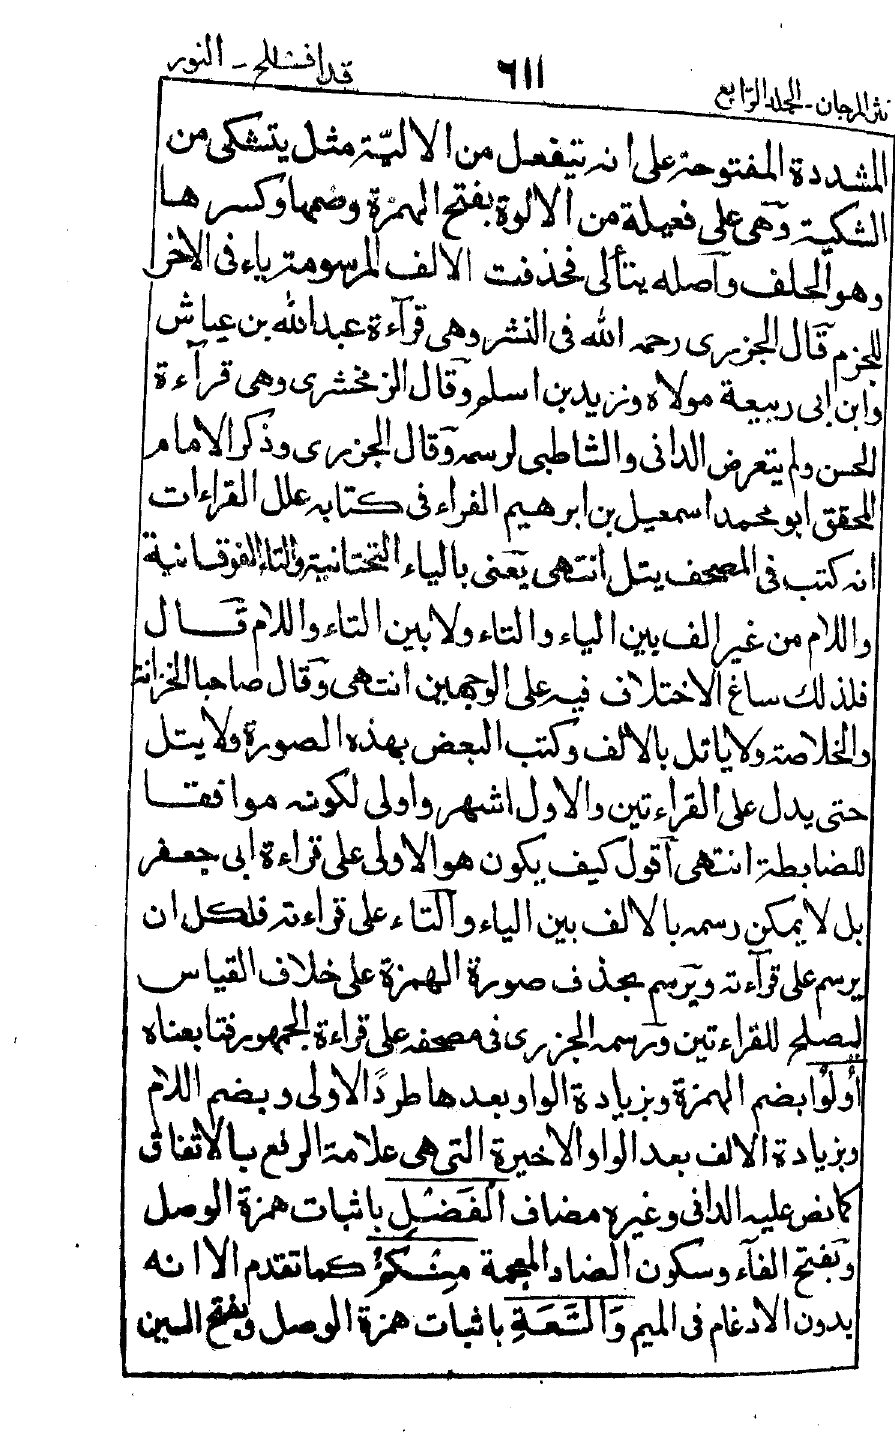 نثر المرجان - الجلد الرابع ٦١١ قد افلح - النور
المشددة المفتوحة على انه يتفعل من الالية مثل يتشكى من
الشكية وهى على فعيلة من الالوة بفتح الهمزة وضمها وكسرها
وهو الحلف وآصله يتألى فحذفت الالف المرسومة ياء فى الاخر
للجزم قال الجزرى رحمه الله فى النشر وهى قرآءة عبدالله بن عياش
وابن ابى ربيعة مولاه وزيد بن اسلم وقال الزمخشرى وهى قرآءة
الحسن ولم يتعرض الدانى والشاطبى لرسمه وقال الجزرى وذكر الامام
المحقق ابو محمد اسمعيل بن ابرهيم القراء فى كتابه علل القراءات
انه كتب فى المصحف يتل انتهى يعنى بالياء التحتانية والتاء الفوقانية
واللام من غير الف بين الياء والتاء ولا بين التاء واللام قال
فلذلك ساغ الاختلاف فيه على الوجهين انتهى وقال صاحب الخزانة
والخلاصة ولا ياتل بالالف وكتب البعض بهذه الصورة ولا يتل
حتى يدل على القراءتين والاول اشهر واولى لكونه موافقا
للضابطة انتهى آقول كيف يكون هو الاولى على قراءة ابى جعفر
بل لا يمكن رسمه بالالف بين الياء وآلتاء على قراءته فلكل ان
يرسم على قرآءته ويرسم بحذف صورة الهمزة على خلاف القياس
ليصلح للقراءتين ورسمه الجزرى فى مصحفه على قراءة الجمهور فتابعناه
أولوا بضم الهمزة وبزيادة الواو بعدها طردًا لاولى وبضم اللام
وبزيادة الالف بعد الواو الاخيرة التى هى علامة الرفع بالاتفاق
كما نص عليه الدانى وغيره مضاف الْفَضْلِ باثبات همزة الوصل
وبفتح الفآء وسكون الضاد المعجمة مِنْكُمْ كما تقدم الا انه
بدون الادغام فى الميم وَالسَّعَةِ باثبات همزة الوصل وبفتح السين